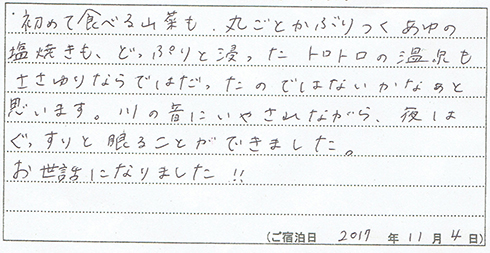 初めて食べる山菜も、丸ごとかぶりつくあゆの
塩焼きも、どっぷりと浸ったトロトロの温泉も
ささゆりならではだったのではないかなぁと
思います。川の音にいやされながら、夜は
ぐっすりと眠ることができました。
お世話になりました!!
(ご宿泊日 2017 年 11 月 4 日)